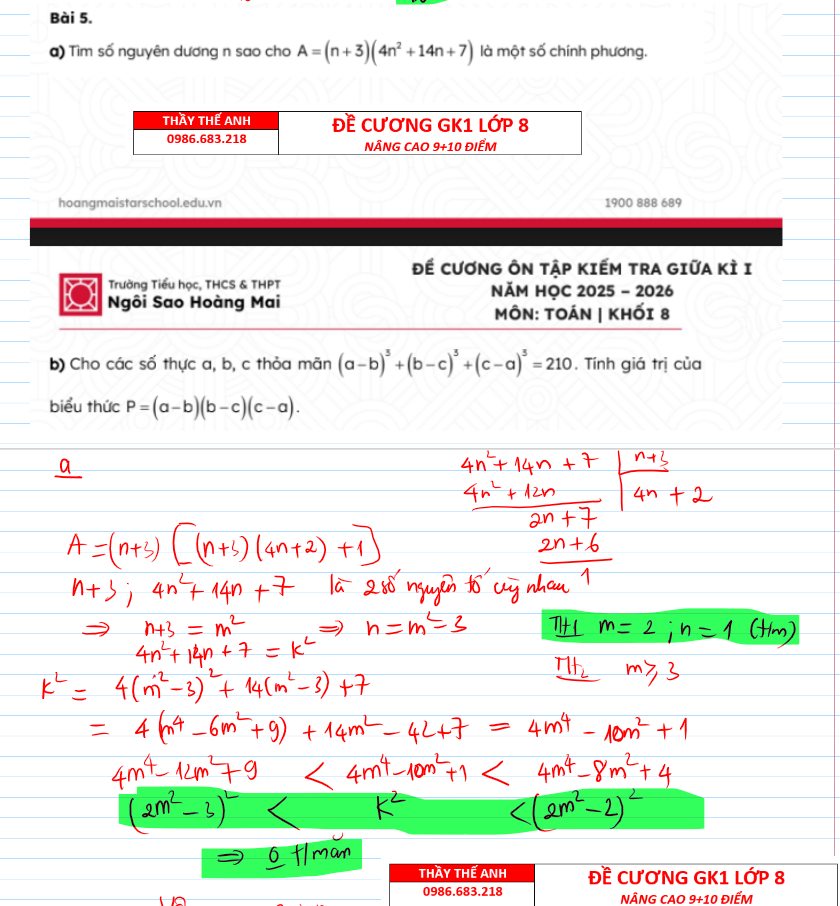 Bài 5.
a) Tìm số nguyên dương n sao cho A = (n + 3)(4n² + 14n + 7) là một số chính phương.
THẦY THẾ ANH
0986.683.218
ĐỀ CƯƠNG GK1 LỚP 8
NÂNG CAO 9+10 ĐIỂM
hoangmaistarschool.edu.vn
1900 888 689
Trường Tiểu học, THCS & THPT
Ngôi Sao Hoàng Mai
ĐỀ CƯƠNG ÔN TẬP KIỂM TRA GIỮA KÌ I
NĂM HỌC 2025 – 2026
MÔN: TOÁN | KHỐI 8
b) Cho các số thực a, b, c thỏa mãn (a – b)³ + (b – c)³ + (c – a)³ = 210. Tính giá trị của
biểu thức P = (a – b)(b – c)(c – a).
a
4n² + 14n + 7 | n+3
4n² + 12n | 4n + 2
2n + 7
2n + 6
1
A = (n+3) [(n+3)(4n+2) + 1]
n+3 ; 4n² + 14n + 7 là 2 số nguyên tố cùng nhau
⇒ n+3 = m² ⇒ n = m² – 3
4n² + 14n + 7 = k²
TH1 m = 2 ; n = 1 (t/m)
TH2 m ≥ 3
k² = 4(m² – 3)² + 14(m² – 3) + 7
= 4(m⁴ – 6m² + 9) + 14m² – 42 + 7 = 4m⁴ – 10m² + 1
4m⁴ – 12m² + 9 < 4m⁴ – 10m² + 1 < 4m⁴ – 8m² + 4
(2m² – 3)² < k² < (2m² – 2)²
⇒ 0 t/mãn
THẦY THẾ ANH
0986.683.218
ĐỀ CƯƠNG GK1 LỚP 8
NÂNG CAO 9+10 ĐIỂM